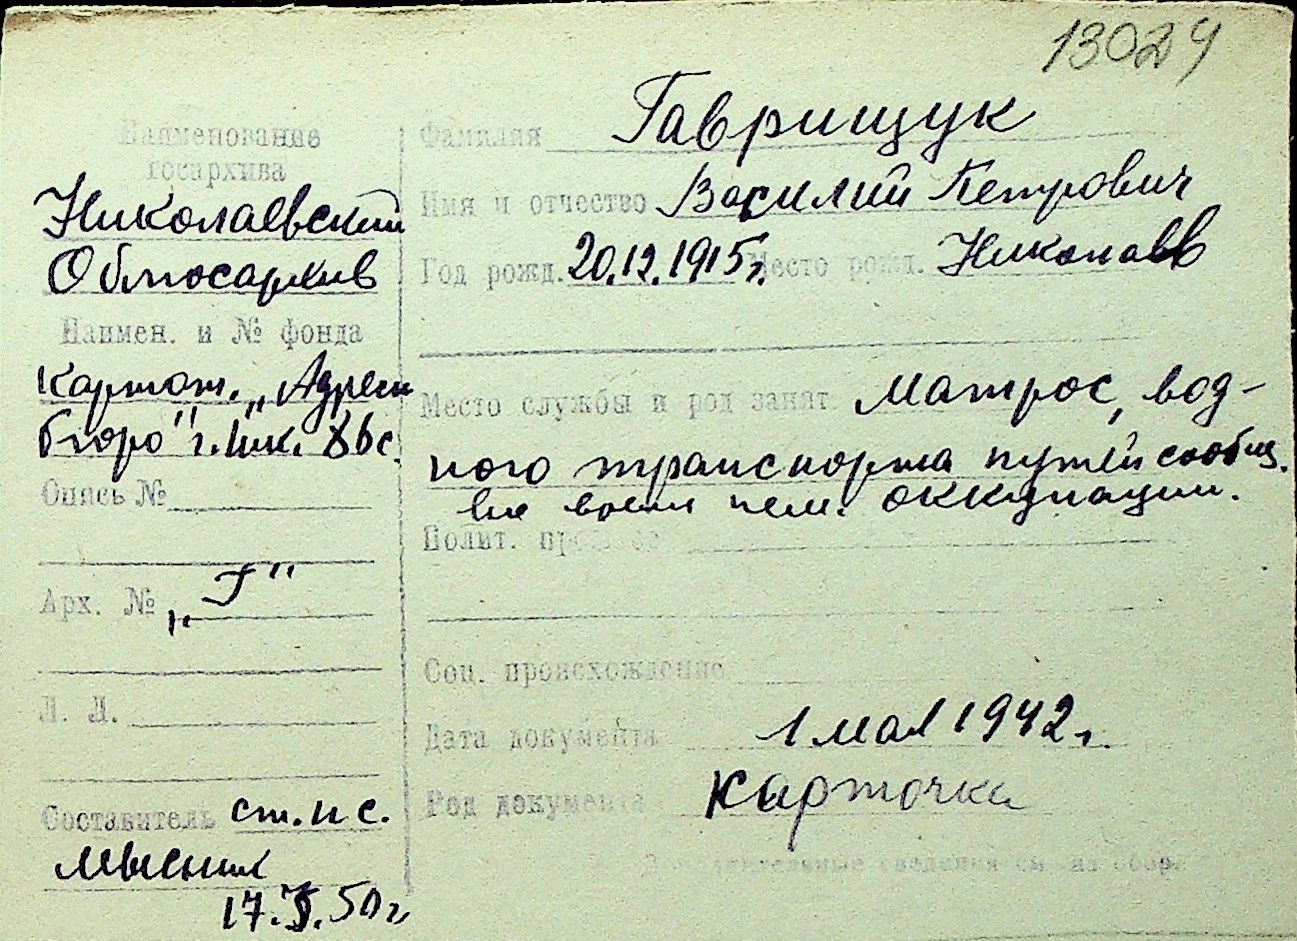 13024
Наименование
госархива
Николаевский
Облгосархив
Наимен. и № фонда
Картот. „Адресн
бюро" г. Ник.
Опись №
Арх. № „Г"
Л. Л.
Составитель ст. н с.
17. 50 г.
Фамилия Гаврищук
Имя и отчество Василий Петрович
Год рожд. 20.12.1915 г. Место рожд. Николаев
Место службы и род занят. матрос, вод-
ного транспорта путей сообщ.
во время нем. оккупации.
Полит.
Соц. происхождение
Дата документа 1 мая 1942 г.
Род документа карточка
сведения см. на обор.